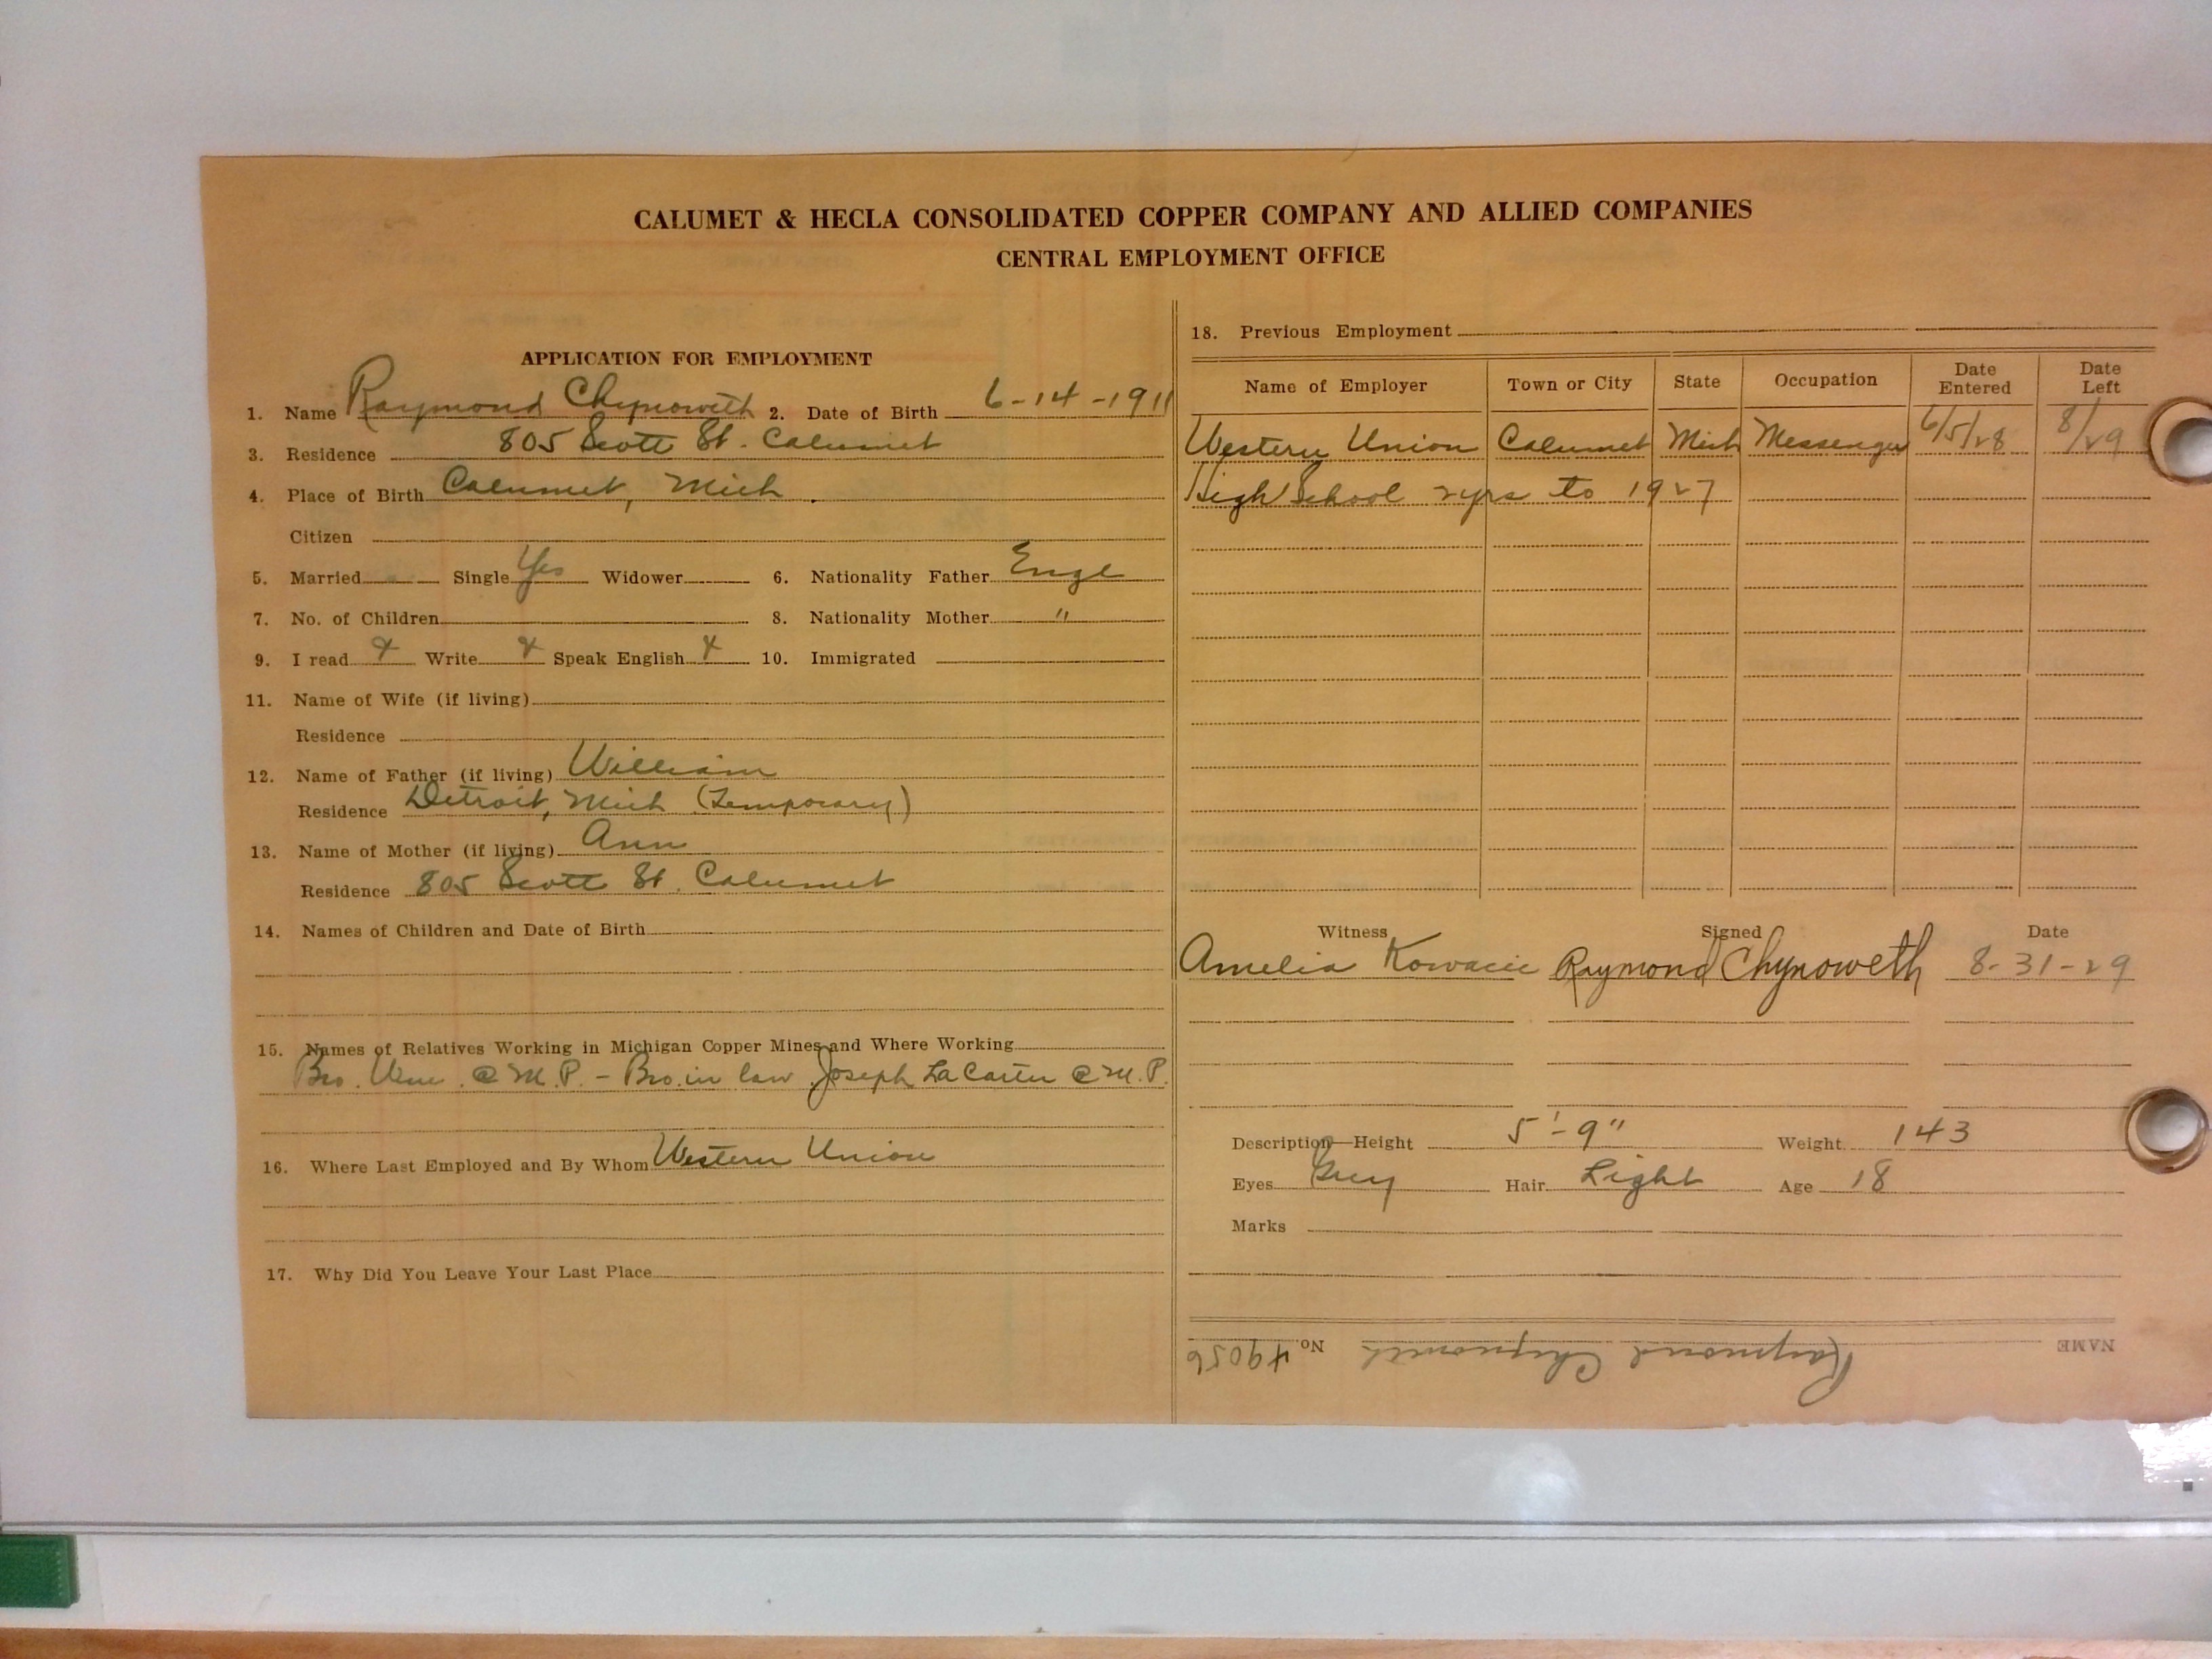 CALUMET & HECLA CONSOLIDATED COPPER COMPANY AND ALLIED COMPANIES
CENTRAL EMPLOYMENT OFFICE
APPLICATION FOR EMPLOYMENT
1. Name Raymond Chynoweth 2. Date of Birth 6-14-1911
3. Residence 805 Scott St. Calumet
4. Place of Birth Calumet, Mich.
Citizen
5. Married Single Yes Widower 6. Nationality Father Engl
7. No. of Children 8. Nationality Mother "
9. I read x Write x Speak English x 10. Immigrated
11. Name of Wife (if living)
Residence
12. Name of Father (if living) William
Residence Detroit, Mich (Temporary)
13. Name of Mother (if living) Ann
Residence 805 Scott St. Calumet
14. Names of Children and Date of Birth
15. Names of Relatives Working in Michigan Copper Mines and Where Working
Bro. @ M.P. - Bro. in law Joseph LaCarter @ M.P.
16. Where Last Employed and By Whom Western Union
17. Why Did You Leave Your Last Place
18. Previous Employment
Name of Employer Town or City State Occupation Date Entered Date Left
Western Union Calumet Mich Messenger 6/5/28 8/29
High School 2 yrs to 1927
Witness Signed Date
Amelia Kowacic Raymond Chynoweth 8-31-29
Description—Height 5'-9" Weight 143
Eyes Grey Hair Light Age 18
Marks
NAME Raymond Chynoweth No. 49056